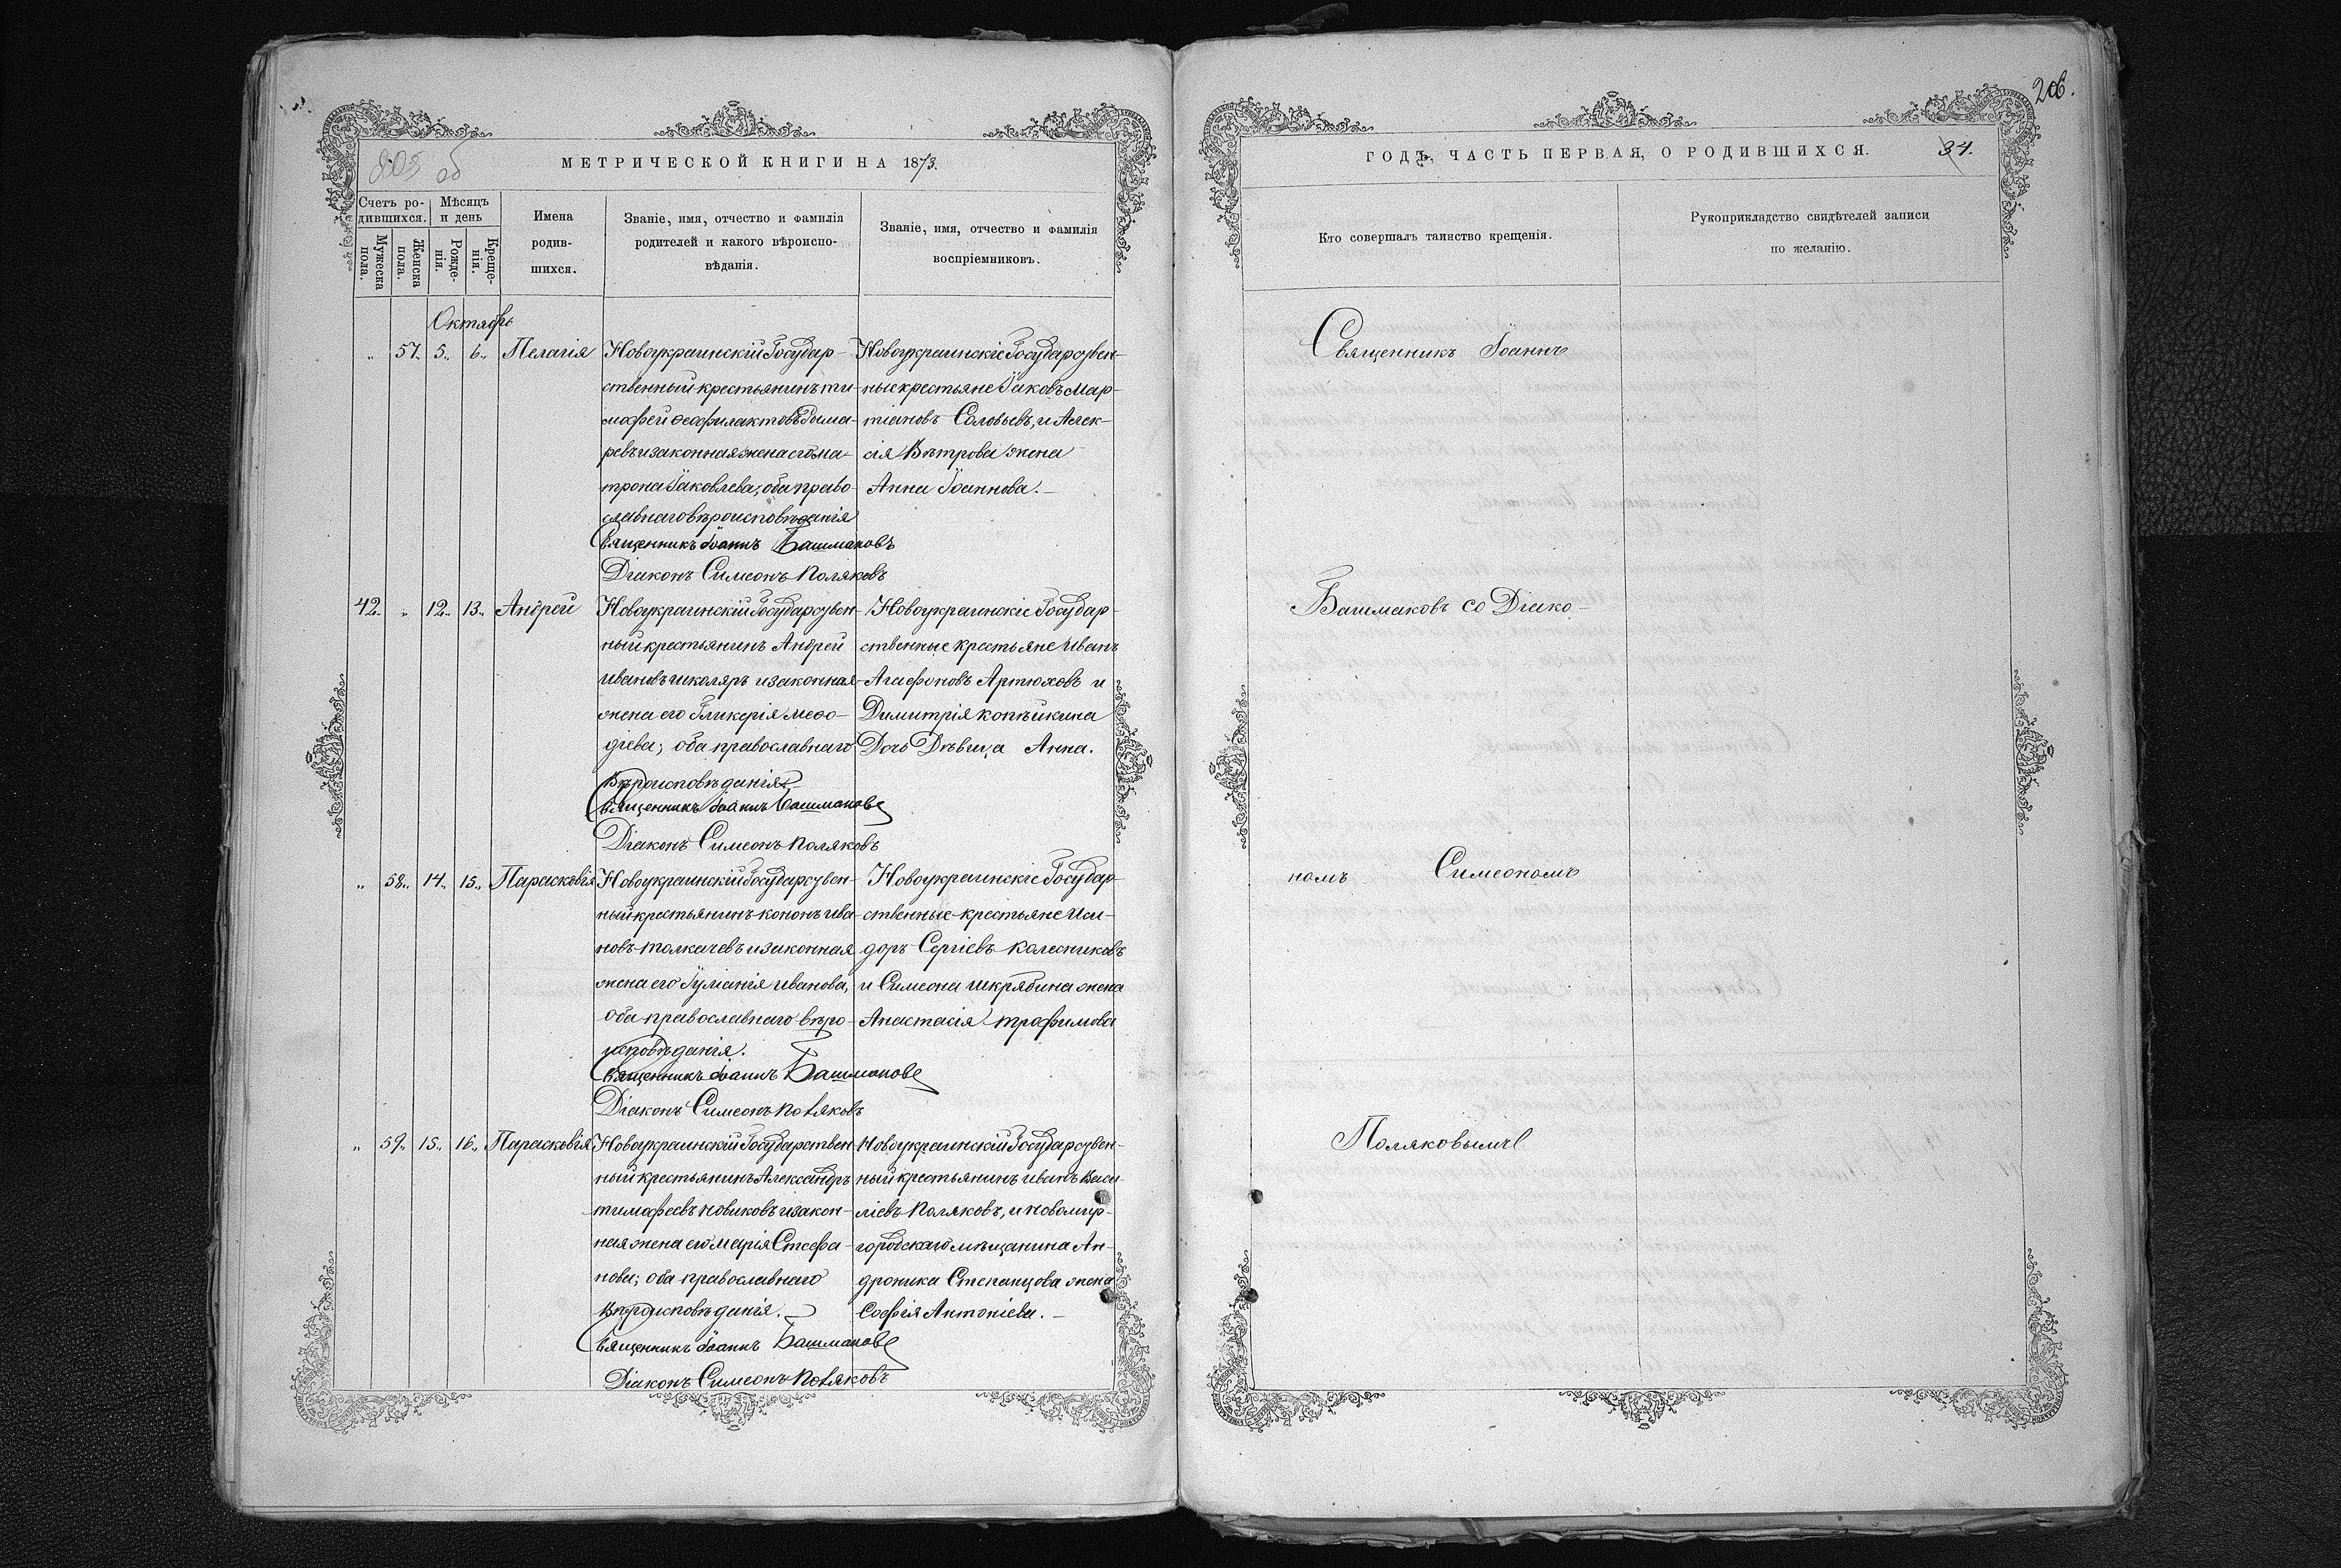 205 об
МЕТРИЧЕСКОЙ КНИГИ НА 1873.
Счетъ родившихся.
Мѣсяцъ и день
Мужеска пола.
Женска пола.
Рожденія.
Крещенія.
Имена
родив-
шихся.
Званіе, имя, отчество и фамилія
родителей и какого вѣроиспо-
вѣданія.
Званіе, имя, отчество и фамилія
воспріемниковъ.
Октябрь
„ 57. 5„ 6„ Пелагія
Новоукраинскій Государ-
ственный крестьянинъ Ти-
мофей Феофилактовъ
ревъ и законная жена его Ма-
трона Іаковлева, оба право-
славнаго вѣроисповѣданія
Священникъ Іоаннъ Башмаковъ
Діаконъ Симеонъ Поляковъ
Новоукраинскіе Государствен-
ные крестьяне Іаковъ Мар-
тіановъ Соловьевъ, и Алек-
сія Вѣтрова жена
Анна Іоаннова.
42. „ 12„ 13„ Андрей
Новоукраинскій Государствен-
ный крестьянинъ Андрей
Ивановъ Школяръ и законная
жена его Гликерія Мефо-
діева; оба православнаго
вѣроисповѣданія
Священникъ Іоаннъ Башмаковъ
Діаконъ Симеонъ Поляковъ
Новоукраинскіе Государ-
ственные крестьяне Иванъ
Агафоновъ Артюховъ и
Димитрія Копѣйкина
Дочь Дѣвица Анна.
„ 58„ 14„ 15„ Парасковія
Новоукраинскій Государствен-
ный крестьянинъ Кононъ Ива-
новъ Толкачевъ и законная
жена его Іуліанія Иванова,
оба православнаго вѣро-
исповѣданія.
Священникъ Іоаннъ Башмаковъ
Діаконъ Симеонъ Поляковъ
Новоукраинскіе Государ-
ственные крестьяне Иси-
доръ Сергіевъ Колесниковъ
и Симеона Шкрябина жена
Анастасія Трофимова
„ 59„ 15„ 16„ Парасковія
Новоукраинскій Государствен-
ный крестьянинъ Александръ
Тимофеевъ Новиковъ и закон-
ная жена его Марія Стефа-
нова; оба православнаго
вѣроисповѣданія.
Священникъ Іоаннъ Башмаковъ
Діаконъ Симеонъ Поляковъ
Новоукраинскій Государствен-
ный крестьянинъ Иванъ Васи-
ліевъ Поляковъ, и Новомир-
городскаго мѣщанина Ан-
дроника Степанцова жена
Софія Антоніева.
206.
ГОДЪ, ЧАСТЬ ПЕРВАЯ, О РОДИВШИХСЯ.
34.
Кто совершалъ таинство крещенія.
Рукоприкладство свидѣтелей записи
по желанію.
Священникъ Іоаннъ
Башмаковъ со Діако-
номъ Симеономъ
Поляковымъ